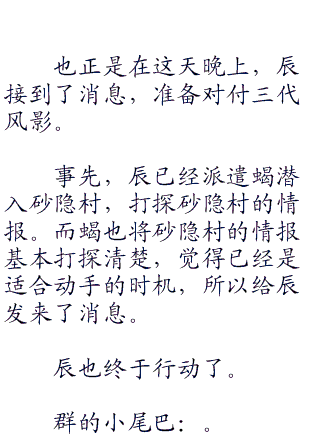 也正是在这天晚上，辰
接到了消息，准备对付三代
风影。
事先，辰已经派遣蝎潜
入砂隐村，打探砂隐村的情
报。而蝎也将砂隐村的情报
基本打探清楚，觉得已经是
适合动手的时机，所以给辰
发来了消息。
辰也终于行动了。
群的小尾巴：。